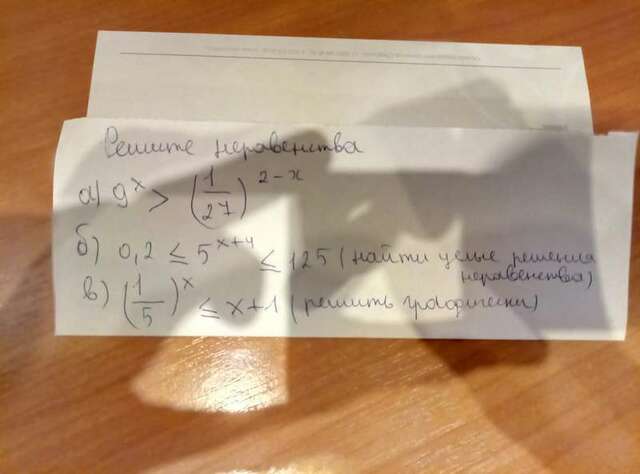 Решите неравенства
а) 9^x > (1/27)^(2-x)
б) 0,2 ≤ 5^(x+4) ≤ 125 (найти целые решения
неравенства)
в) (1/5)^x ≤ x+1 (решить графически)